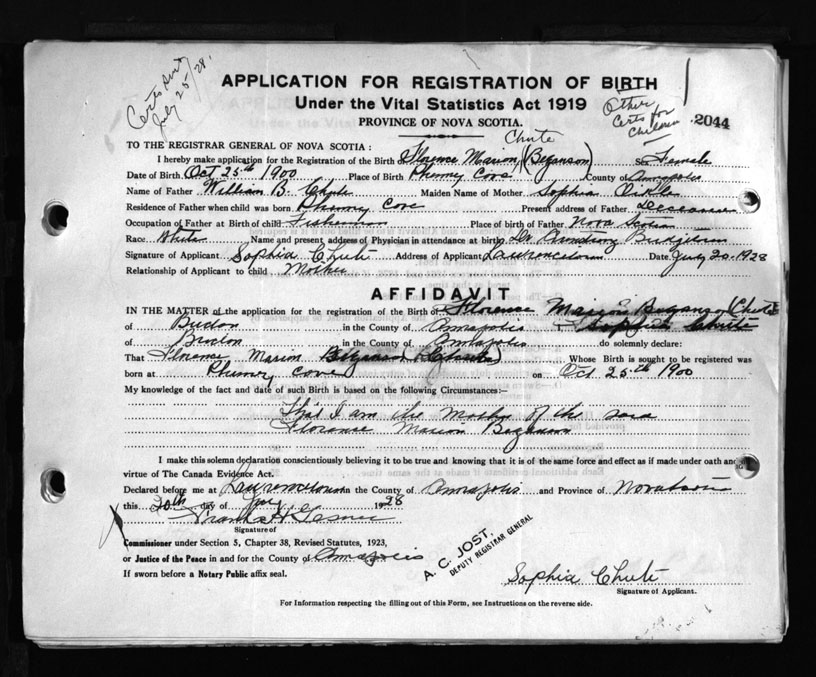 Certs sent
July 25/28.
APPLICATION FOR REGISTRATION OF BIRTH
Under the Vital Statistics Act 1919
PROVINCE OF NOVA SCOTIA.
Other
Certs for
Children
2044
Chute
TO THE REGISTRAR GENERAL OF NOVA SCOTIA :
I hereby make application for the Registration of the Birth Florence Marion (Beganson) Female
Date of Birth Oct 25th 1900 Place of Birth Phinney Cove County of Annapolis
Name of Father William B. Chute Maiden Name of Mother Sophia
Residence of Father when child was born Phinney Cove Present address of Father Deceased
Occupation of Father at Birth of child Fisherman Place of birth of Father Nova Scotia
Race White Name and present address of Physician in attendance at birth Dr Armstrong
Signature of Applicant Sophia Chute Address of Applicant Date July 20 1928
Relationship of Applicant to child Mother
AFFIDAVIT
IN THE MATTER of the application for the registration of the Birth of Florence Marion (Chute)
of in the County of Annapolis Sophia Chute
of in the County of Annapolis do solemnly declare:
That Florence Marion (Chute) Whose Birth is sought to be registered was
born at Cove on Oct 25th 1900
My knowledge of the fact and date of such Birth is based on the following Circumstances:
That I am the Mother of the said
Florence Marion Beganson
I make this solemn declaration conscientiously believing it to be true and knowing that it is of the same force and effect as if made under oath and
virtue of The Canada Evidence Act.
Declared before me at in the County of Annapolis and Province of
this 20th day of July 1928
Signature of
Commissioner under Section 5, Chapter 38, Revised Statutes, 1923,
or Justice of the Peace in and for the County of Annapolis
If sworn before a Notary Public affix seal.
A. C. JOST,
DEPUTY REGISTRAR GENERAL
Sophia Chute
Signature of Applicant.
For Information respecting the filling out of this Form, see Instructions on the reverse side.